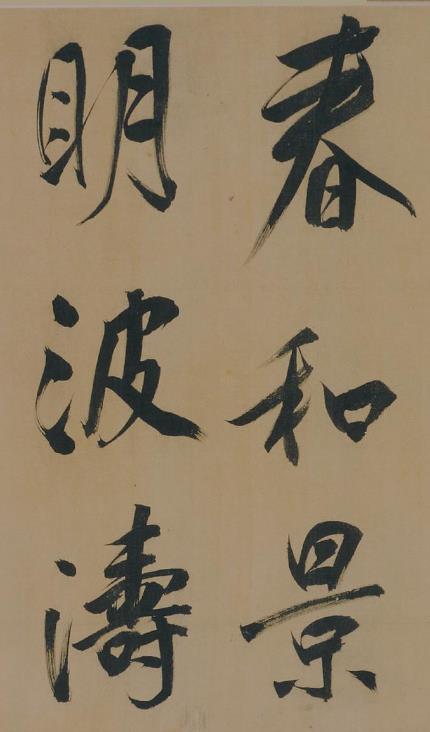 春和景
明波濤